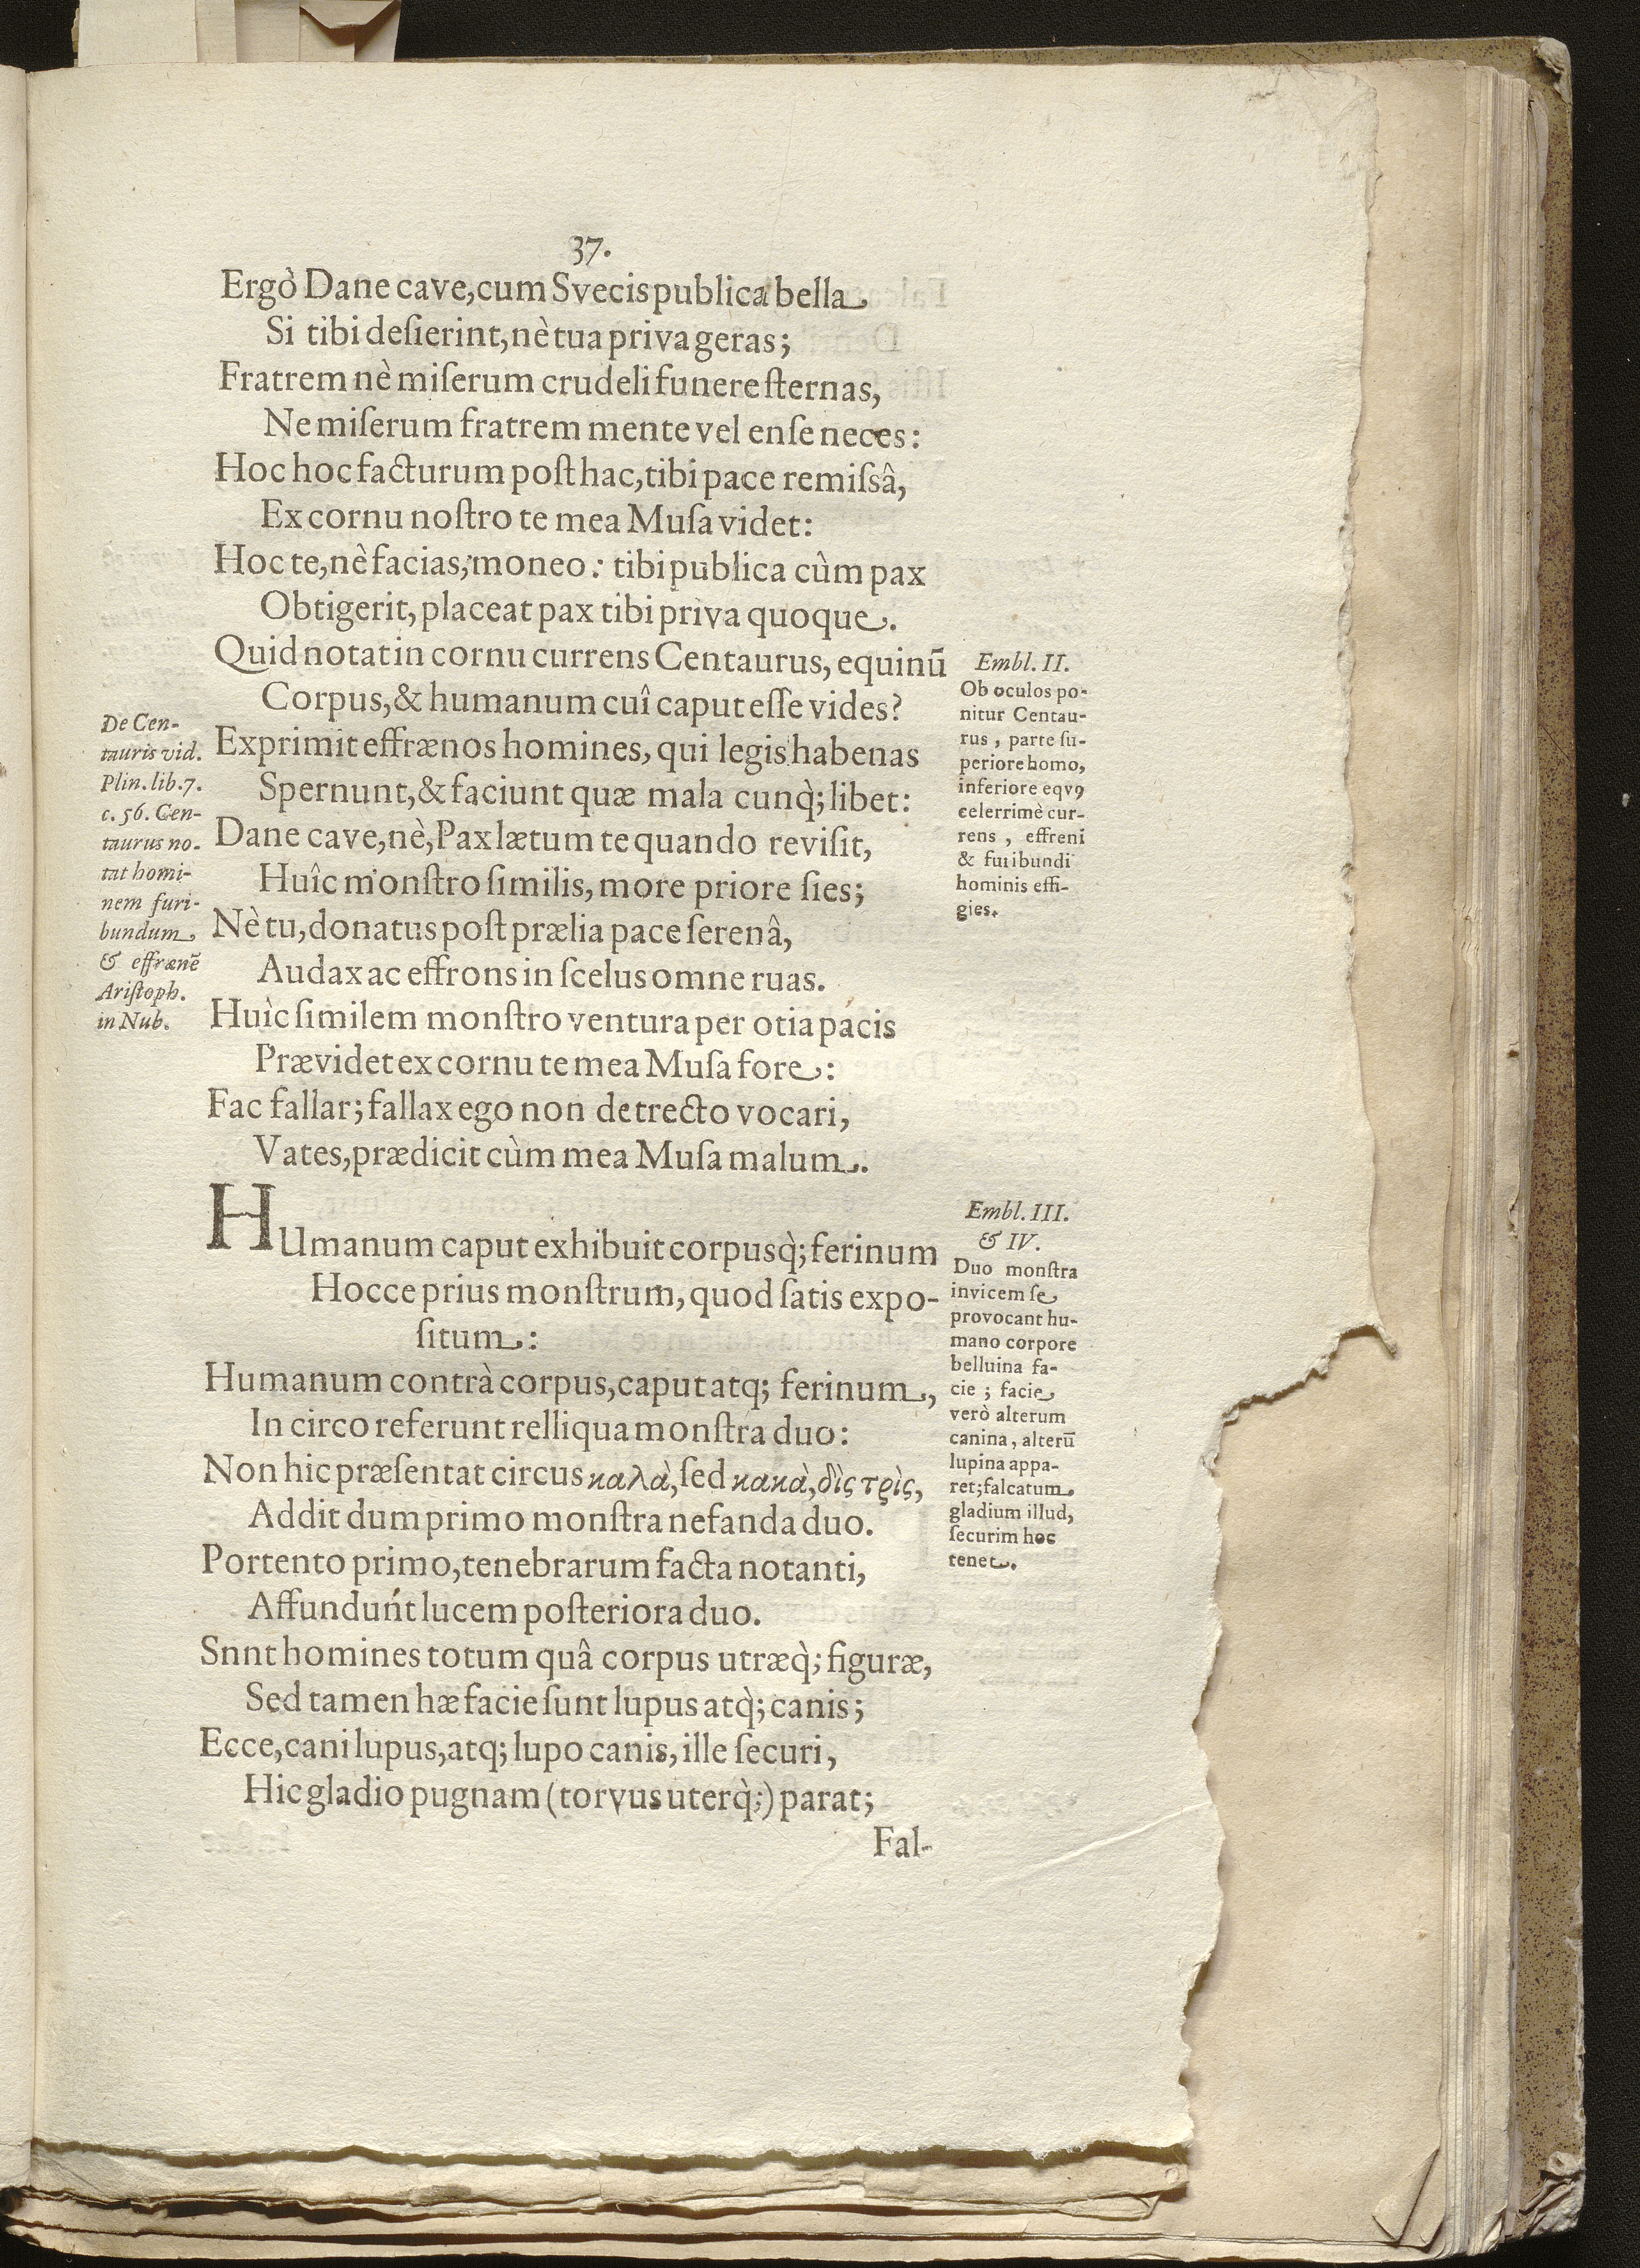 37.
Ergò Dane cave, cum Svecis publica bella
Si tibi deſierint, nè tua priva geras;
Fratrem nè miſerum crudeli funere ſternas,
Ne miſerum fratrem mente vel enſe neces:
Hoc hoc facturum poſthac, tibi pace remiſsâ,
Ex cornu noſtro te mea Muſa videt:
Hoc te, nè facias, moneo: tibi publica cùm pax
Obtigerit, placeat pax tibi priva quoque.
Quid notat in cornu currens Centaurus, equinū
Corpus, & humanum cuî caput eſſe vides?
Exprimit effrænos homines, qui legis habenas
Spernunt, & faciunt quæ mala cunq̀; libet:
Dane cave, nè, Pax lætum te quando reviſit,
Huîc monſtro ſimilis, more priore ſies;
Nè tu, donatus poſt prælia pace ſerenâ,
Audax ac effrons in ſcelus omne ruas.
Huìc ſimilem monſtro ventura per otia pacis
Prævidet ex cornu te mea Muſa fore:
Fac fallar; fallax ego non detrecto vocari,
Vates, prædicit cùm mea Muſa malum.
De Cen-
tauris vid.
Plin. lib. 7.
c. 56. Cen-
taurus no-
tat homi-
nem furi-
bundum,
& effrænē
Ariſtoph.
in Nub.
Embl. II.
Ob oculos po-
nitur Centau-
rus, parte ſu-
periore homo,
inferiore eqvꝰ
celerrimè cur-
rens, effreni
& furibundi
hominis effi-
gies.
HUmanum caput exhibuit corpusq̀; ferinum
Hocce prius monſtrum, quod ſatis expo-
ſitum:
Humanum contrà corpus, caput atq; ferinum,
In circo referunt relliqua monſtra duo:
Non hic præſentat circus καλὰ, ſed κακὰ, δὶς τρὶς,
Addit dum primo monſtra nefanda duo.
Portento primo, tenebrarum facta notanti,
Affundunt lucem poſteriora duo.
Snnt homines totum quâ corpus utræq̀; figuræ,
Sed tamen hæ facie ſunt lupus atq̀; canis;
Ecce, cani lupus, atq; lupo canis, ille ſecuri,
Hic gladio pugnam (torvus uterq̀;) parat;
Embl. III.
& IV.
Duo monſtra
invicem ſe
provocant hu-
mano corpore
belluina fa-
cie; facie
verò alterum
canina, alterū
lupina appa-
ret; falcatum
gladium illud,
ſecurim hoc
tenet.
Fal-